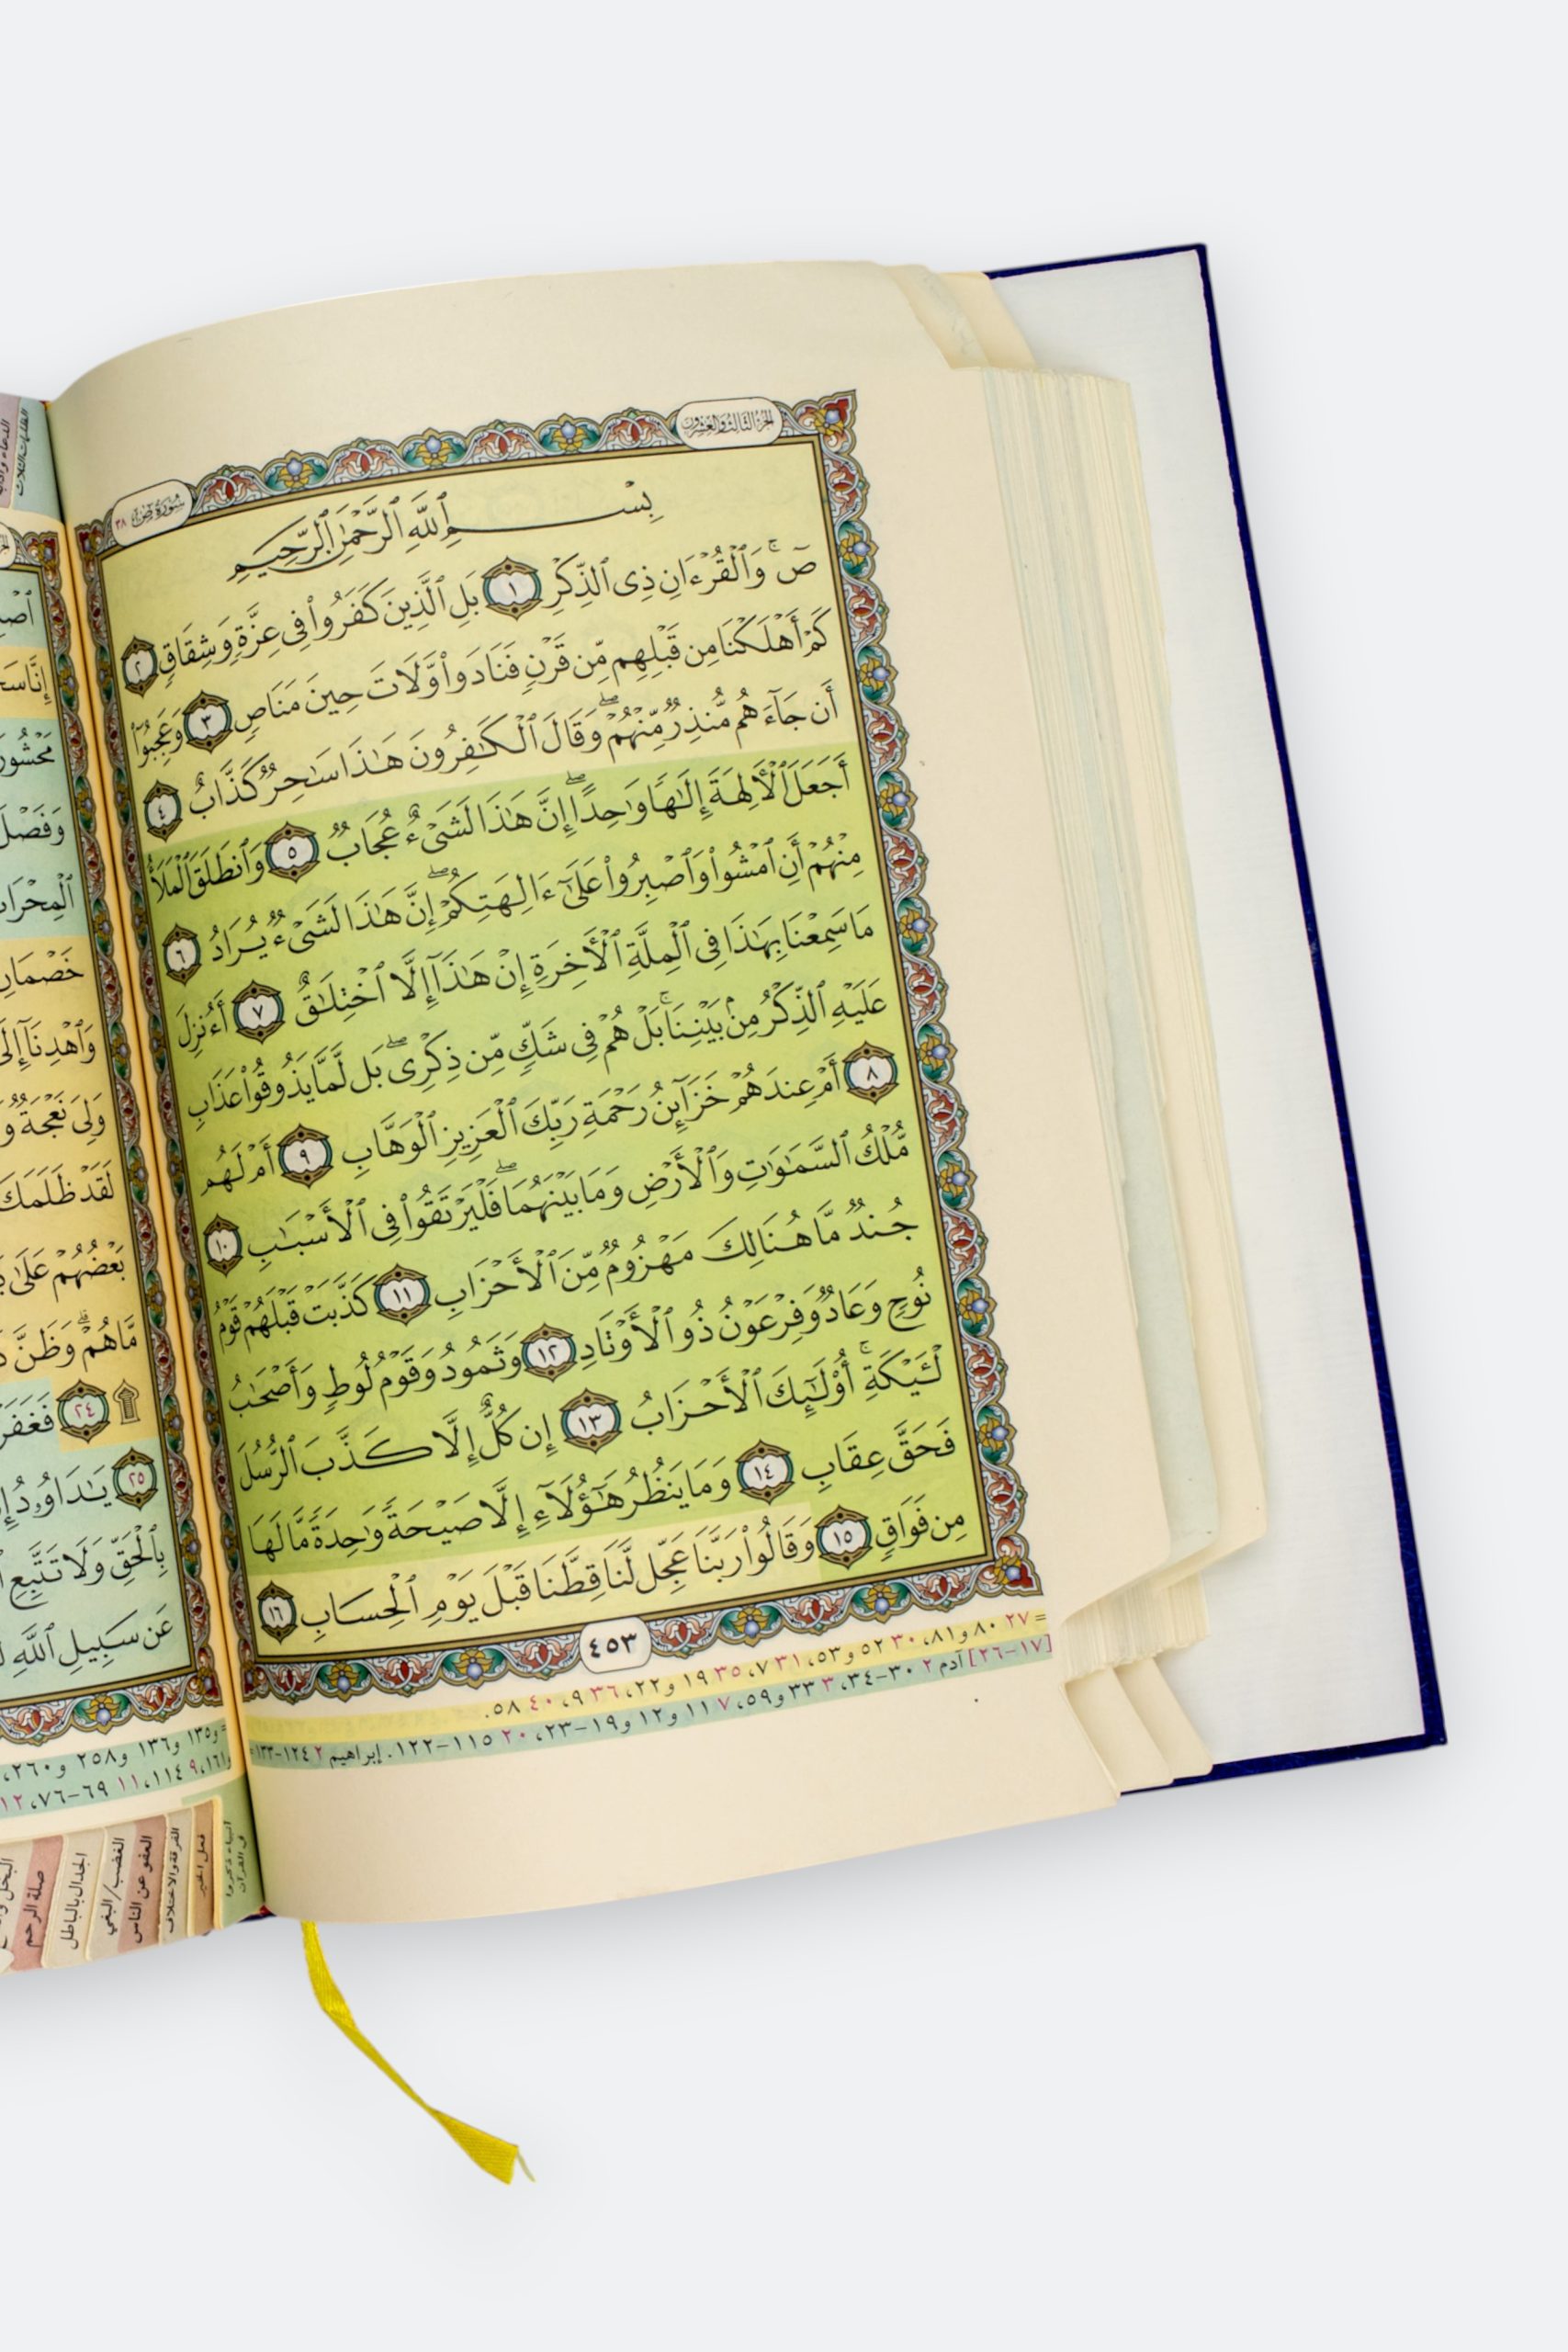 الجزء الثالث والعشرون
سورة ص ٣٨
بِسْمِ ٱللَّهِ ٱلرَّحْمَٰنِ ٱلرَّحِيمِ
صٓ ۚ وَٱلْقُرْءَانِ ذِى ٱلذِّكْرِ ١ بَلِ ٱلَّذِينَ كَفَرُوا۟ فِى عِزَّةٍ وَشِقَاقٍ ٢
كَمْ أَهْلَكْنَا مِن قَبْلِهِم مِّن قَرْنٍ فَنَادَوا۟ وَّلَاتَ حِينَ مَنَاصٍ ٣ وَعَجِبُوٓا۟
أَن جَآءَهُم مُّنذِرٌ مِّنْهُمْ ۖ وَقَالَ ٱلْكَٰفِرُونَ هَٰذَا سَٰحِرٌ كَذَّابٌ ٤
أَجَعَلَ ٱلْأَلِهَةَ إِلَٰهًا وَٰحِدًا ۖ إِنَّ هَٰذَا لَشَىْءٌ عُجَابٌ ٥ وَٱنطَلَقَ ٱلْمَلَأُ
مِنْهُمْ أَنِ ٱمْشُوا۟ وَٱصْبِرُوا۟ عَلَىٰٓ ءَالِهَتِكُمْ ۖ إِنَّ هَٰذَا لَشَىْءٌ يُرَادُ ٦
مَا سَمِعْنَا بِهَٰذَا فِى ٱلْمِلَّةِ ٱلْأَخِرَةِ إِنْ هَٰذَآ إِلَّا ٱخْتِلَٰقٌ ٧ أَءُنزِلَ
عَلَيْهِ ٱلذِّكْرُ مِنۢ بَيْنِنَا ۚ بَلْ هُمْ فِى شَكٍّ مِّن ذِكْرِى ۖ بَل لَّمَّا يَذُوقُوا۟ عَذَابِ
٨ أَمْ عِندَهُمْ خَزَآئِنُ رَحْمَةِ رَبِّكَ ٱلْعَزِيزِ ٱلْوَهَّابِ ٩ أَمْ لَهُم
مُّلْكُ ٱلسَّمَٰوَٰتِ وَٱلْأَرْضِ وَمَا بَيْنَهُمَا ۖ فَلْيَرْتَقُوا۟ فِى ٱلْأَسْبَٰبِ ١٠
جُندٌ مَّا هُنَالِكَ مَهْزُومٌ مِّنَ ٱلْأَحْزَابِ ١١ كَذَّبَتْ قَبْلَهُمْ قَوْمُ
نُوحٍ وَعَادٌ وَفِرْعَوْنُ ذُو ٱلْأَوْتَادِ ١٢ وَثَمُودُ وَقَوْمُ لُوطٍ وَأَصْحَٰبُ
لْـَٔيْكَةِ ۚ أُو۟لَٰٓئِكَ ٱلْأَحْزَابُ ١٣ إِن كُلٌّ إِلَّا كَذَّبَ ٱلرُّسُلَ
فَحَقَّ عِقَابِ ١٤ وَمَا يَنظُرُ هَٰٓؤُلَآءِ إِلَّا صَيْحَةً وَٰحِدَةً مَّا لَهَا
مِن فَوَاقٍ ١٥ وَقَالُوا۟ رَبَّنَا عَجِّل لَّنَا قِطَّنَا قَبْلَ يَوْمِ ٱلْحِسَابِ ١٦
٤٥٣
= ٢٧ ٨٠ و٨١، ٣٠ ٥٢ و٥٣، ٣١ ٧، ٣٥ ١٩ و٢٢، ٣٦ ٩، ٤٠ ٥٨.
[١٧-٢٦] آدم ٢ ٣٠-٣٤، ٣ ٣٣ و٥٩، ٧ ١١ و١٢ و١٩-٢٣، ٢٠ ١١٥-١٢٢. إبراهيم ٢ ١٢٤-١٣٣=
إِنَّا
وَفَصْلَ
خَصْمَانِ
وَٱهْدِنَآ
وَلِىَ نَعْجَةٌ
لَقَدْ ظَلَمَكَ
بَعْضُهُمْ عَلَىٰ
مَّا هُمْ ۗ وَظَنَّ
۩ ٢٤
٢٥ يَٰدَاوُۥدُ
بِٱلْحَقِّ وَلَا تَتَّبِعِ
عَن سَبِيلِ ٱللَّهِ
=و١٣٥ و١٣٦ و٢٥٨ و٢٦٠،
و١٦١، ٩ ١١٤، ١١ ٦٩-٧٦، ١٢
أنبياء ذكروا في القرآن
فعل الخير
الفرقة والاختلاف
العفو عن الناس
الغضب/البغي
الجدال بالباطل
صلة الرحم